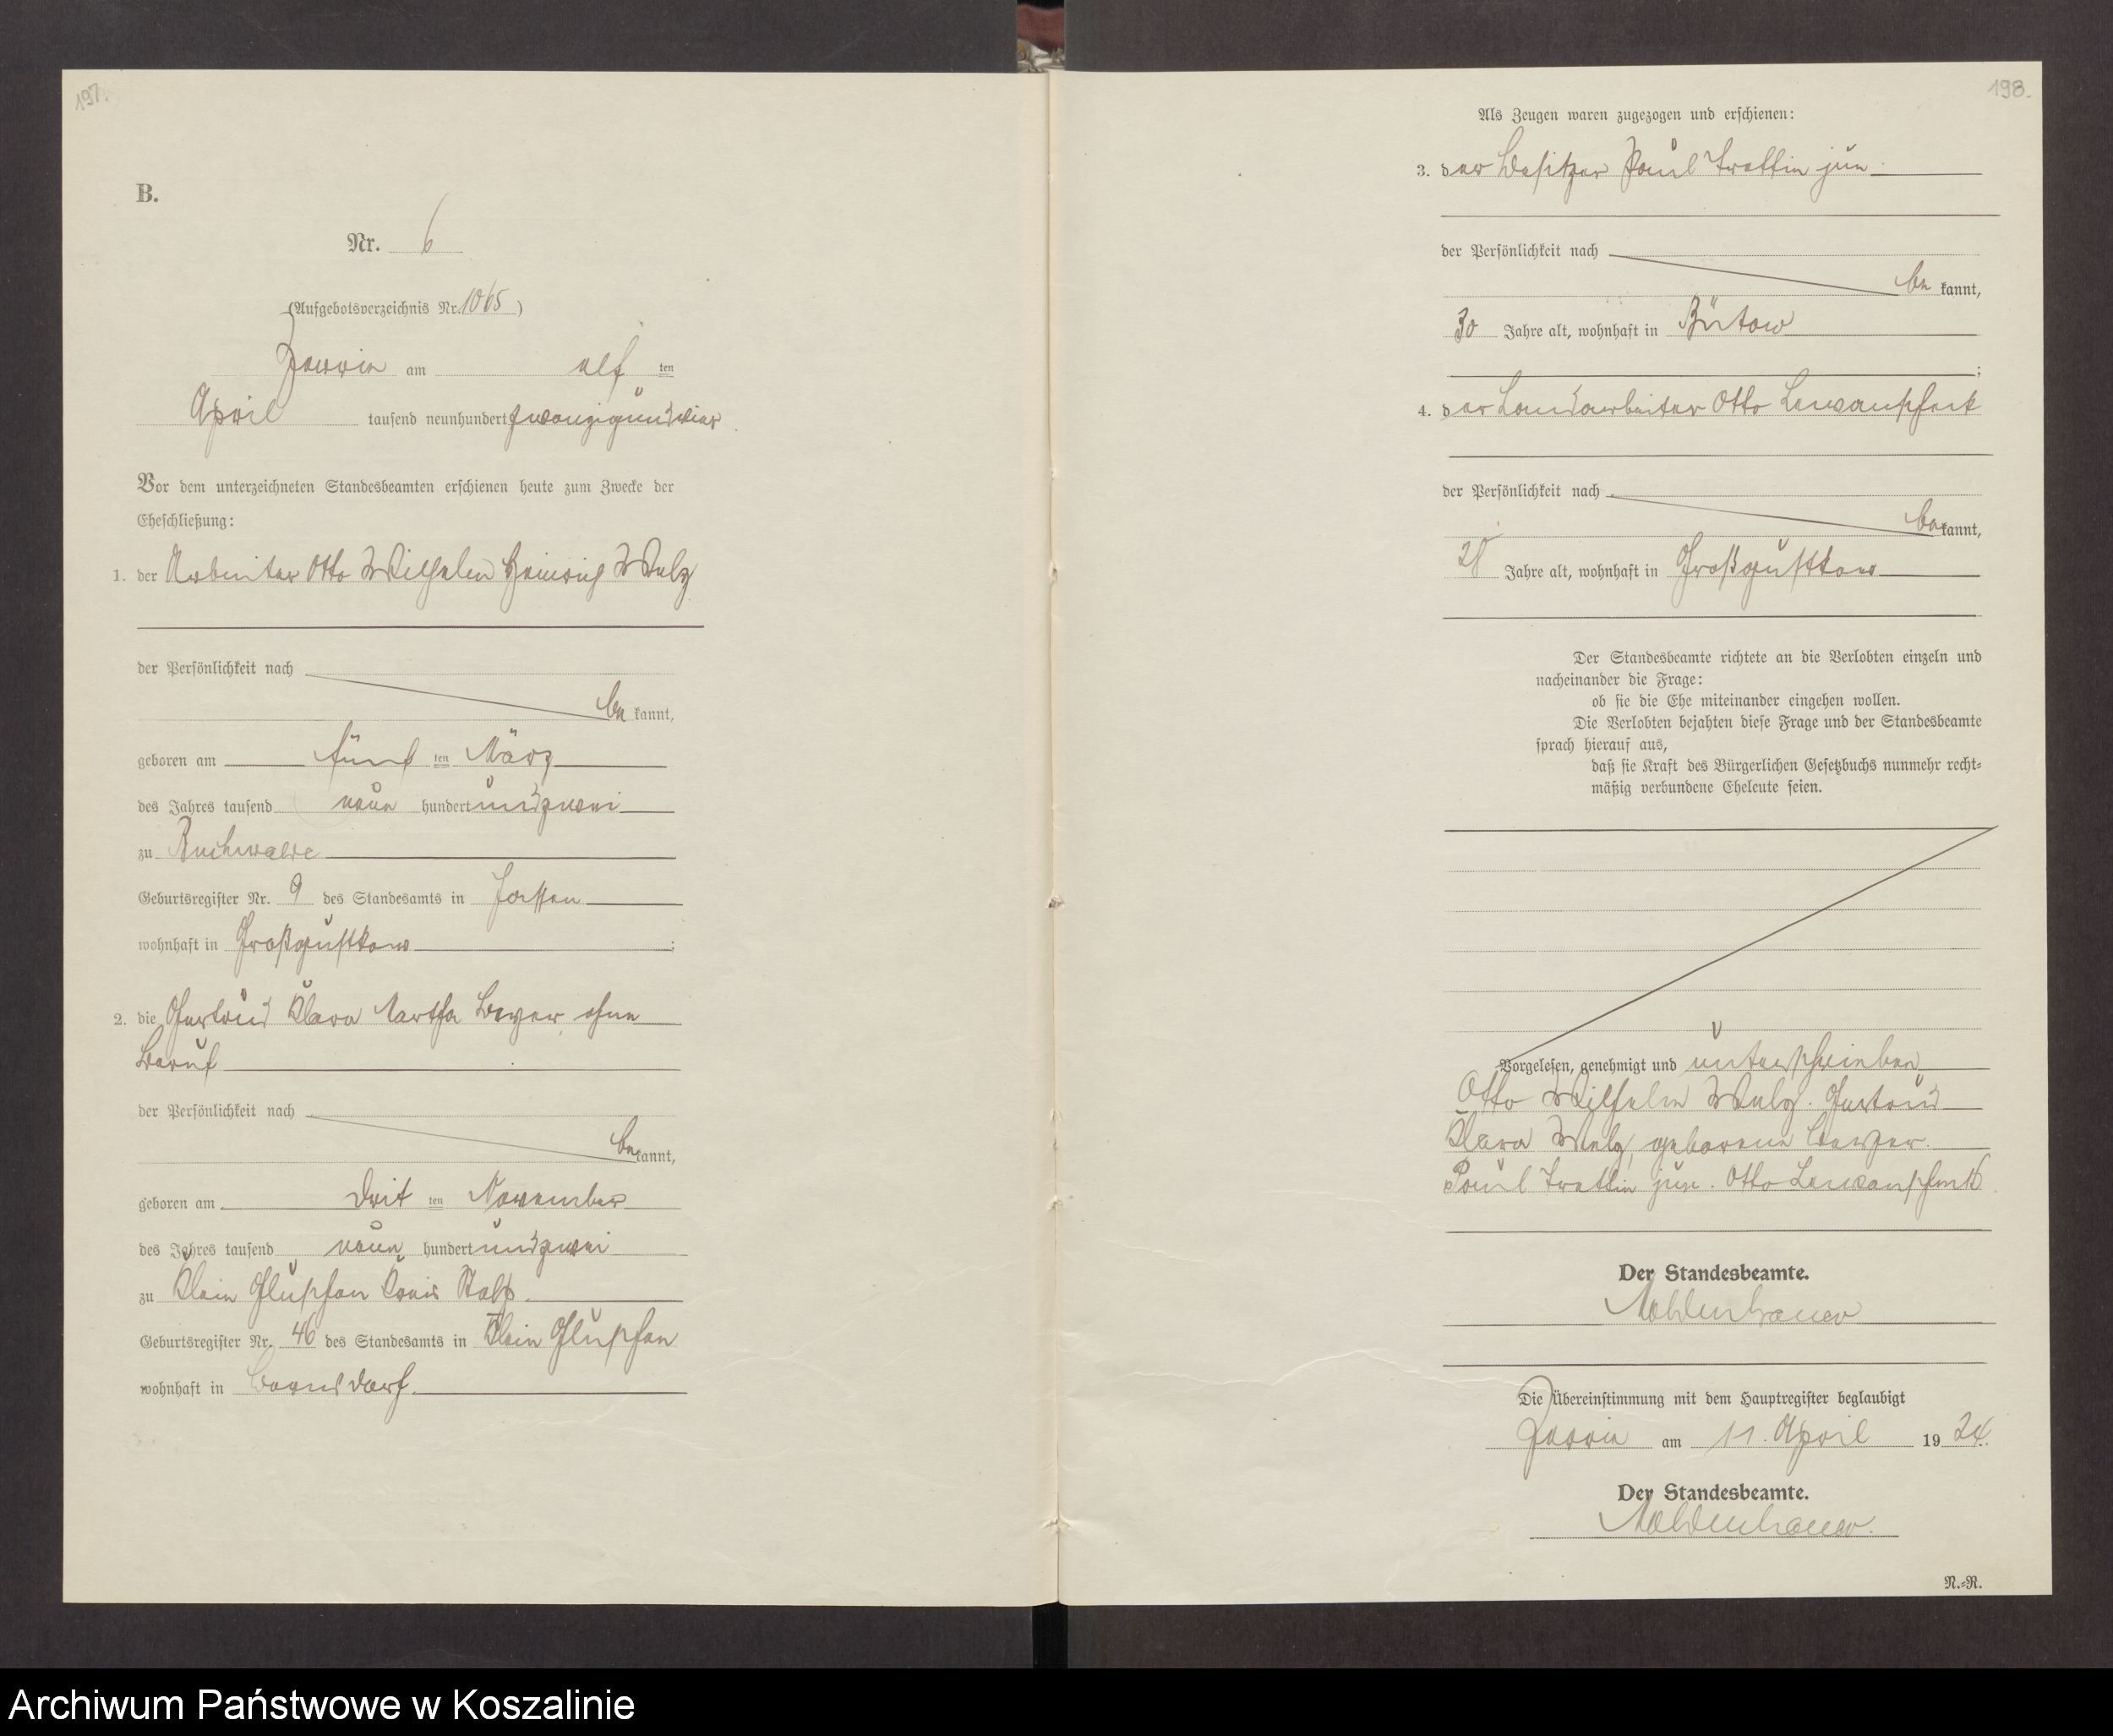 197.
B.
Nr. 6
(Aufgebotsverzeichnis Nr. 1065)
Zerrin am elf ten
April tausend neunhundert zwanzigundvier
Vor dem unterzeichneten Standesbeamten erschienen heute zum Zwecke der
Eheschließung:
1. der Arbeiter Otto Wilhelm Heinrich Welz
der Persönlichkeit nach
be kannt,
geboren am fünf ten März
des Jahres tausend neun hundert undzwei
zu Buchwalde
Geburtsregister Nr. 9 des Standesamts in Jassen
wohnhaft in Großgustkow ;
2. die Gertrud Klara Martha Beyer, ohne
Beruf
der Persönlichkeit nach
be kannt,
geboren am drit ten November
des Jahres tausend neun hundert undzwei
zu Klein Gluschen Kreis Stolp.
Geburtsregister Nr. 46 des Standesamts in Klein Gluschen
wohnhaft in Bernsdorf.
198.
Als Zeugen waren zugezogen und erschienen:
3. der Besitzer Paul Trettin jun
der Persönlichkeit nach
be kannt,
30 Jahre alt, wohnhaft in Bütow
;
4. der Landarbeiter Otto
der Persönlichkeit nach
be kannt,
28 Jahre alt, wohnhaft in Großgustkow
Der Standesbeamte richtete an die Verlobten einzeln und
nacheinander die Frage:
ob sie die Ehe miteinander eingehen wollen.
Die Verlobten bejahten diese Frage und der Standesbeamte
sprach hierauf aus,
daß sie Kraft des Bürgerlichen Gesetzbuchs nunmehr recht=
mäßig verbundene Eheleute seien.
Vorgelesen, genehmigt und unterschrieben
Otto Wilhelm Welz. Gertrud
Klara Welz, geborene Beyer.
Paul Trettin jun. Otto
Der Standesbeamte.
Moldenhauer
Die Übereinstimmung mit dem Hauptregister beglaubigt
Zerrin am 11. April 19 24.
Der Standesbeamte.
Moldenhauer.
N.=R.
Archiwum Państwowe w Koszalinie